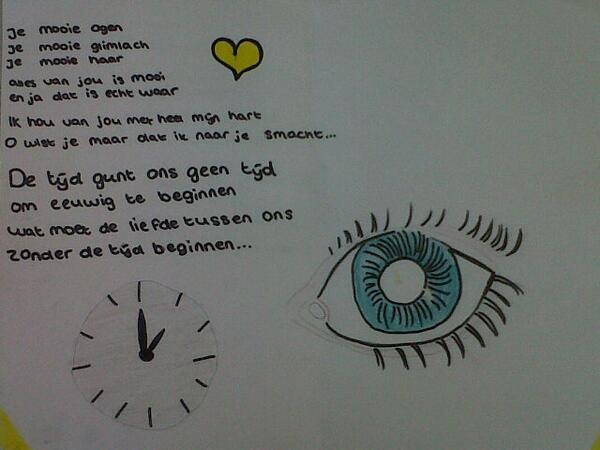 Je mooie ogen
Je mooie glimlach
Je mooie haar
alles van jou is mooi
en ja dat is echt waar
Ik hou van jou met heel mijn hart
O wist je maar dat ik naar je smacht...
De tijd gunt ons geen tijd
om eeuwig te beginnen
wat moet de liefde tussen ons
zonder de tijd beginnen...